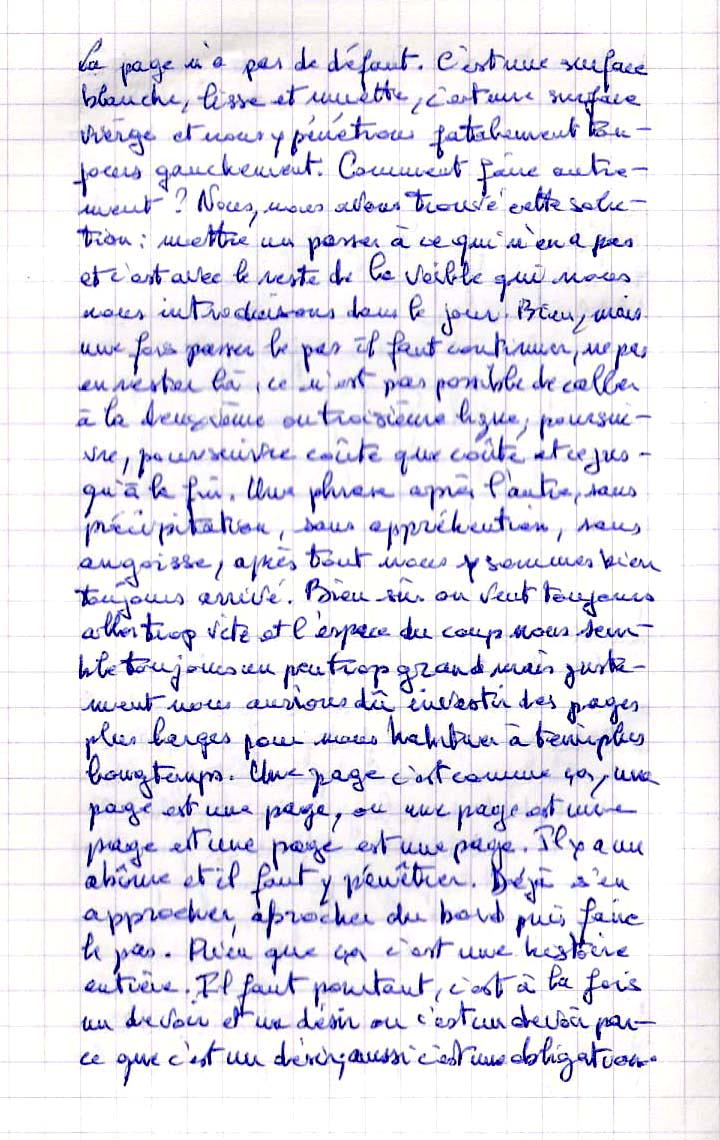 La page n'a pas de défaut. C'est une surface
blanche, lisse et muette, c'est une surface
vierge et nous y pénétrons fatalement tou-
jours gauchement. Comment faire autre-
ment ? Nous, nous avons trouvé cette solu-
tion : mettre un passer à ce qui n'en a pas
et c'est avec le reste de la veille qui nous
nous introduisons dans le jour. Bien, mais
une fois passer le pas il faut continuer, ne pas
en rester là, ce n'est pas possible de caller
à la deuxième ou troisième ligne, poursui-
vre, poursuivre coûte que coûte et ce jus-
qu'à la fin. Une phrase après l'autre, sans
précipitation, sans appréhention, sans
angoisse, après tout nous y sommes bien
toujours arrivé. Bien sûr on veut toujours
aller trop vite et l'espace du coup nous sem-
ble toujours un peu trop grand mais juste-
ment nous aurions dû investir des pages
plus larges pour nous habituer à tenir plus
longtemps. Une page c'est comme ça, une
page est une page, ou une page est une
page est une page est une page. Il y a un
abîme et il faut y pénêtrer. Déjà s'en
approcher, aprocher du bord puis faire
le pas. Rien que ça c'est une histoire
entière. Il faut pourtant, c'est à la fois
un devoir et un désir ou c'est un devoir par-
ce que c'est un désir, aussi c'est une obligation.